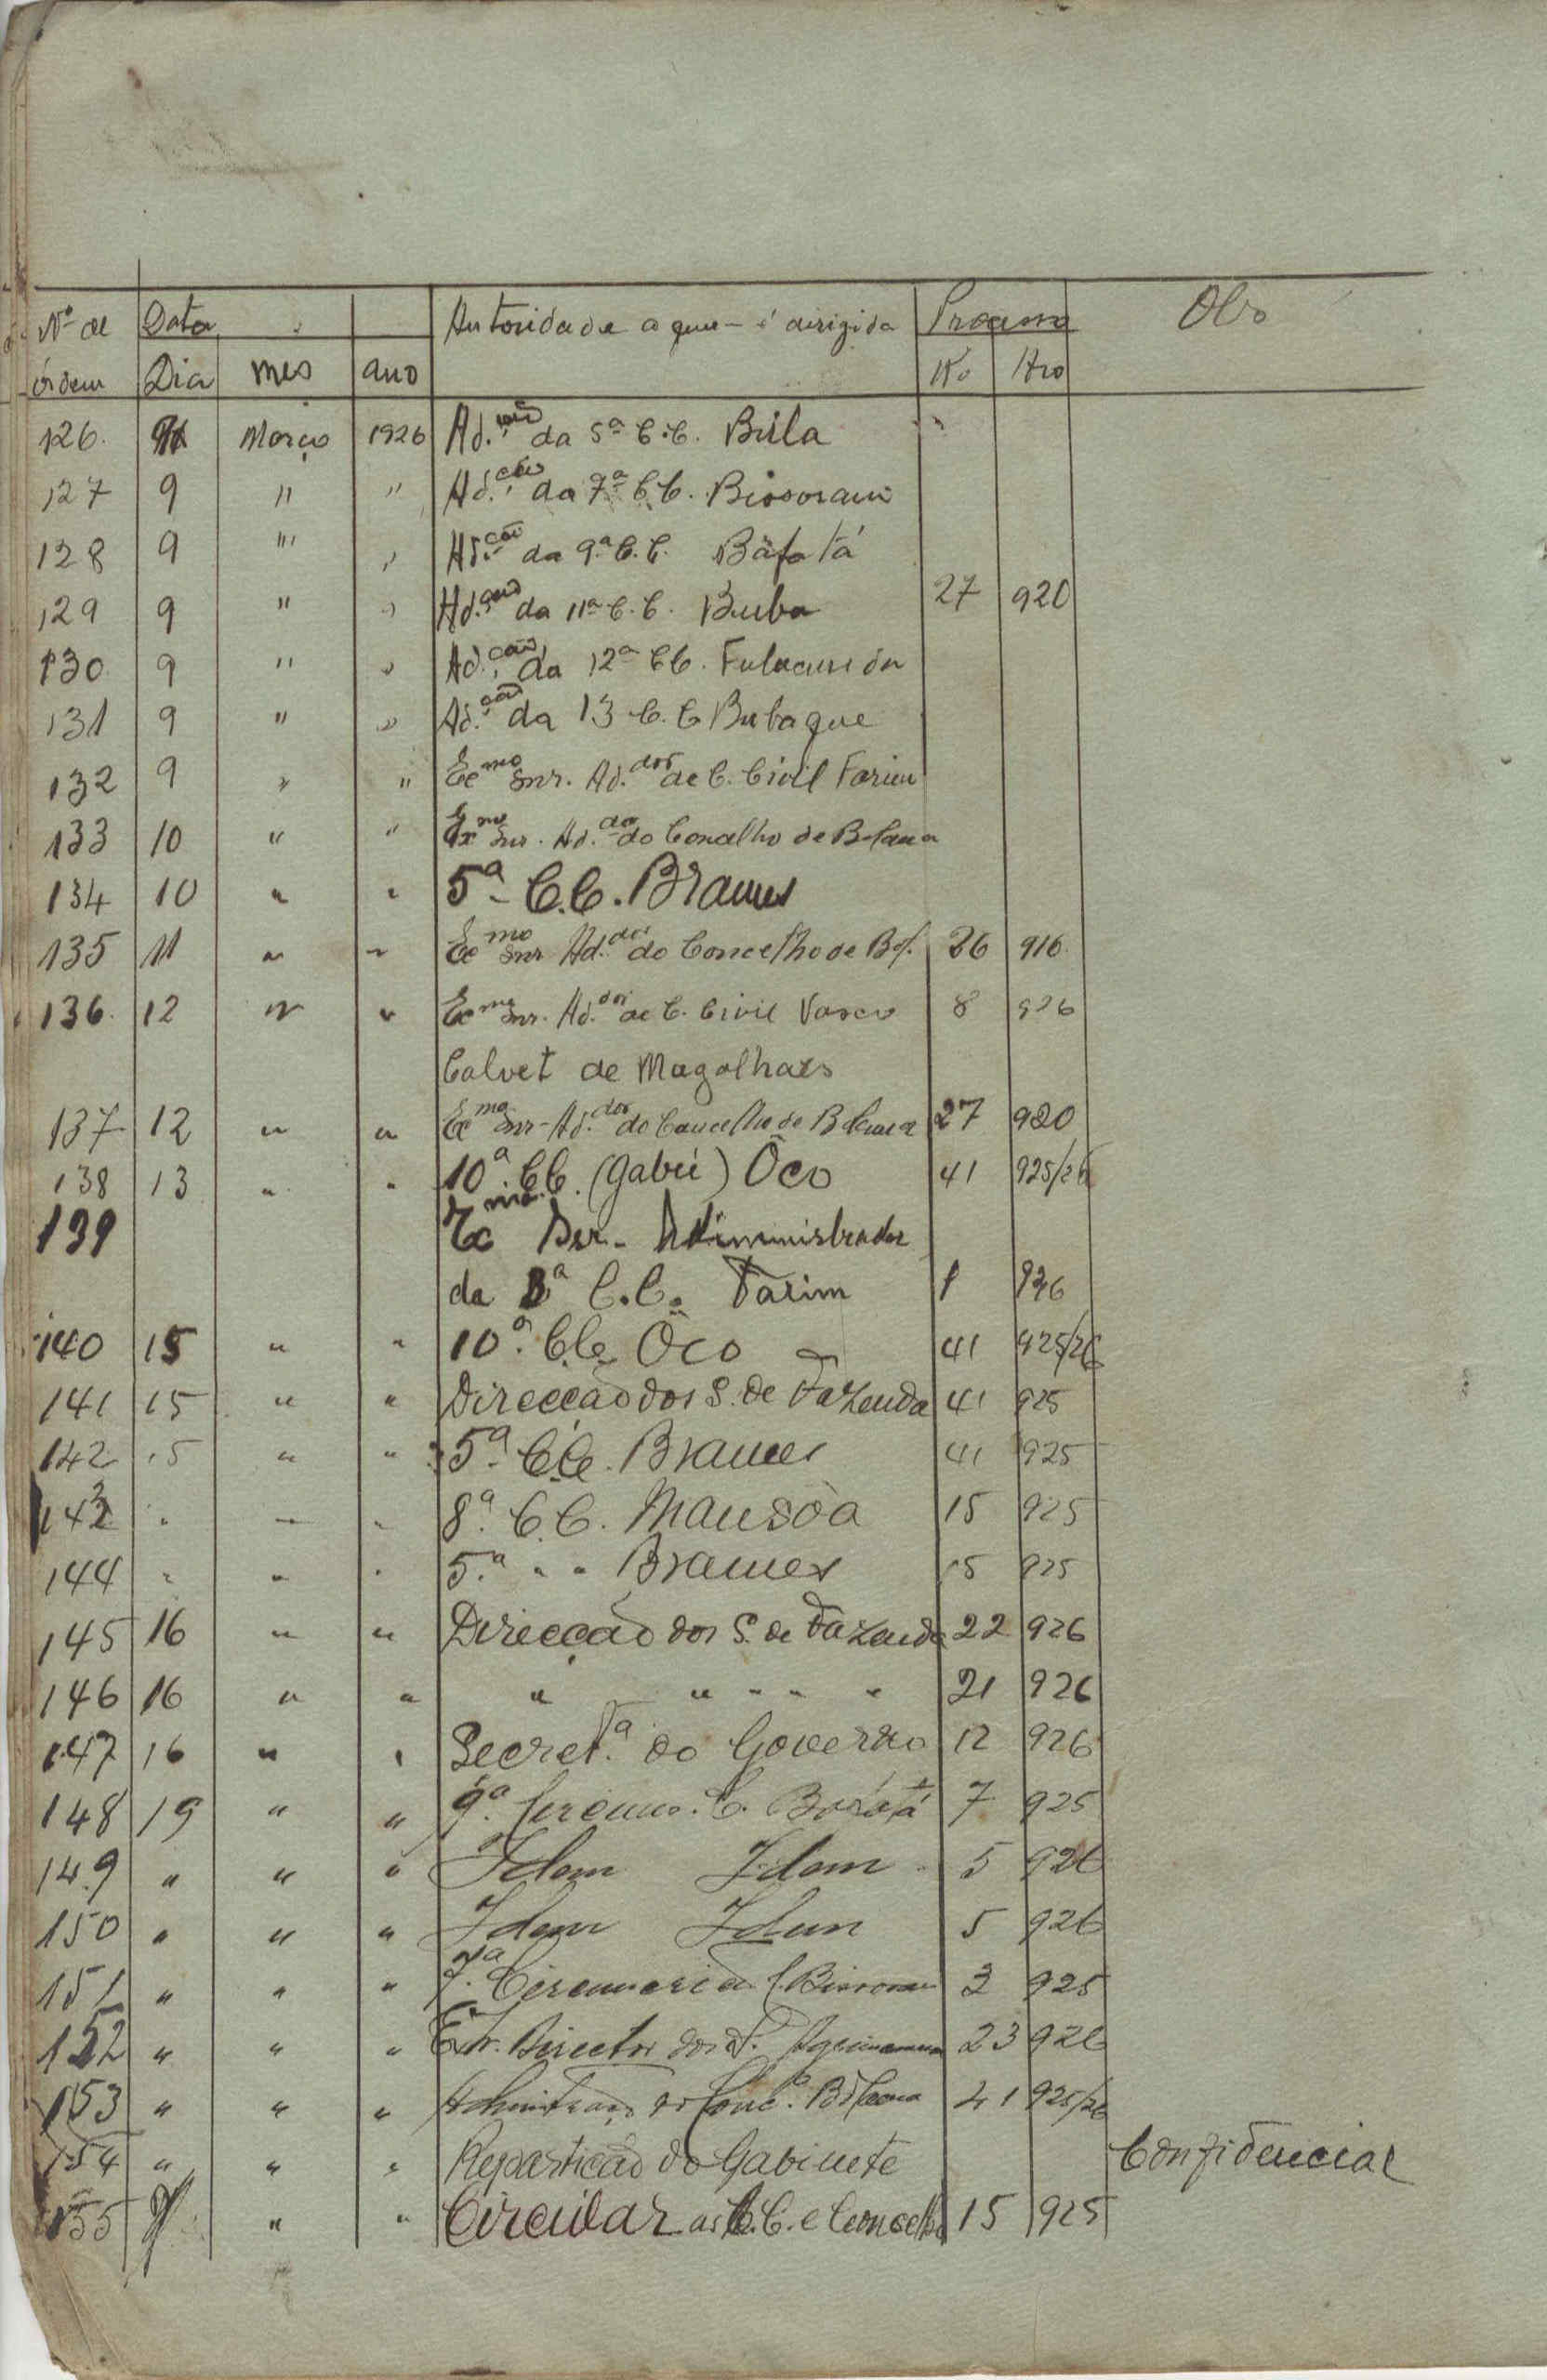 Nº de Data Autoridade a que é dirigida Processo Obs
órdem Dia mes ano No Ano
126. Março 1926 Ad.ção da 5ª C.C. Bula
127 9 " " Ad.ção da 7ª C.C. Bissoram
128 9 " " Ad.ção da 9ª C.C. Bafatá
129 9 " " Ad.ção da 11ª C.C. Buba 27 920
130 9 " " Ad.ção da 12ª C.C. Fulacunda
131 9 " " Ad.ção da 13 C.C Bubaque
132 9 " " Exmo Snr. Ad.dor de C. Civil Farim
133 10 " " Exmo Snr. Ad.dor do Concelho de Bolama
134 10 " " 5ª C.C. Brames
135 11 " " Exmo Snr Ad.dor do Concelho de Bol. 26 916
136. 12 " " Exmo Snr. Ad.dor de C. Civil Vasco 8 926
Calvet de Magalhaes
137 12 " " Exmo Snr Ad.dor do Concelho de Bolama 27 920
138 13 " " 10ª C.C. (Gabú) Ôco 41 925/26
139 Exmo Snr. Administrador
da C.C. Farim 1 926
140 15 " " 10ª C.C. Ôco 41 925/26
141 15 " " Direcção dos S. de Fazenda 41 925
142 15 " " 5ª C.C. Brames 41 925
143 " " " 8ª C.C. Mansôa 15 925
144 " " " 5ª " " Brames 15 925
145 16 " " Direcção dos S. de Fazenda 22 926
146 16 " " " " " " " 21 926
147 16 " " Secret.ª do Governo 12 926
148 19 " " 9ª Circuns. C. Bafatá 7 925
149 " " " Idem Idem 5 926
150 " " " Idem Idem 5 926
151 " " " 7ª Circunscricão C. Bissoram 3 925
152 " " " Director dos S. 23 926
153 " " " Administração do Conc.º Bolama 41 925/26
154 " " " Repartição do Gabinete Confidencial
155 " " Circular as C.C. e Concelho 15 925